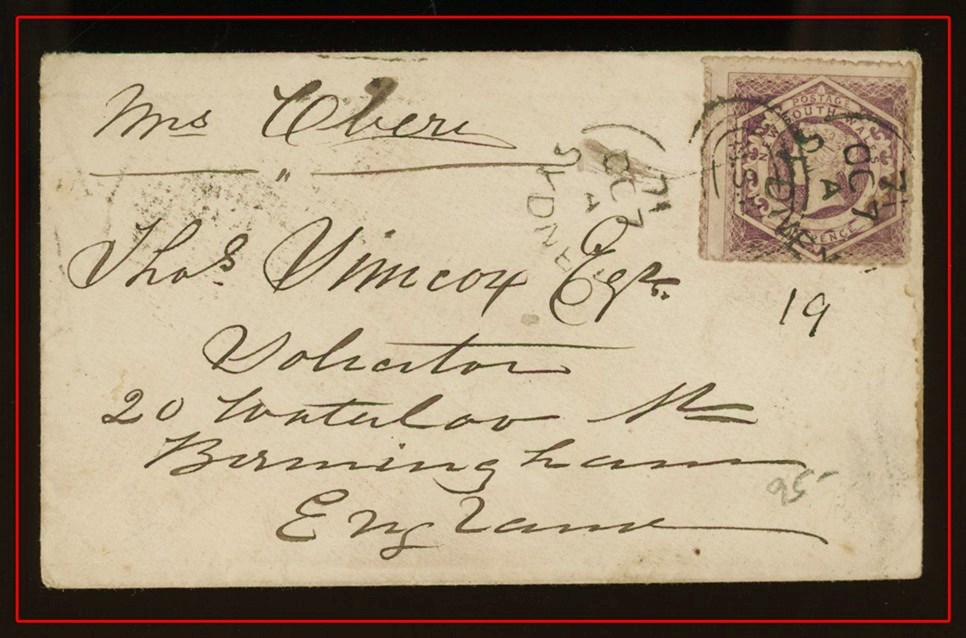 Mrs
Thos. Simcox Esqr.
Solicitor
20 Waterloo St
Birmingham
England
19
95
POSTAGE
NEW SOUTH WALES
PENCE
SYDNEY
A
OC 7
71
SYDNEY
A
OC 7
71
N.S.W